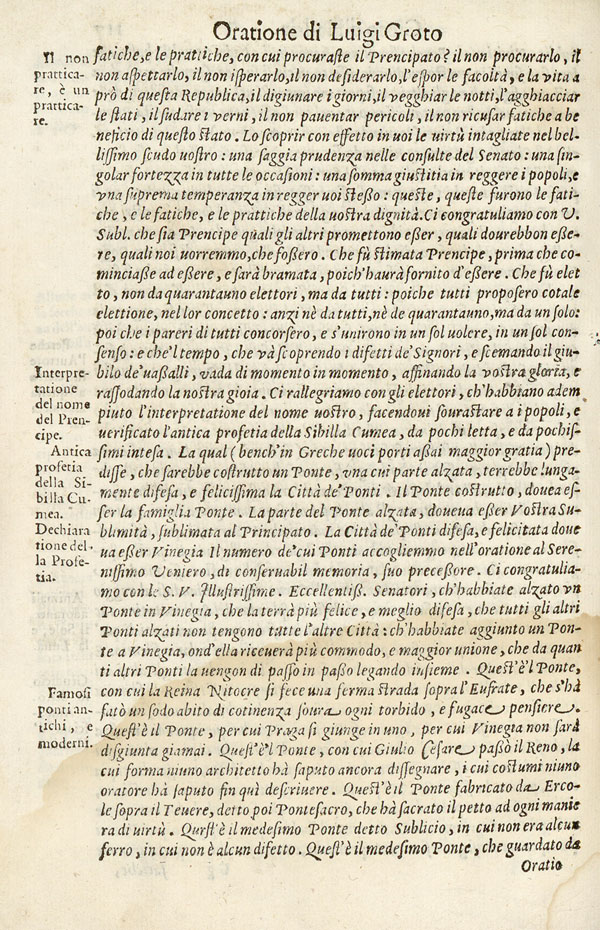 Oratione di Luigi Groto
Il non
prattica-
re, è un
prattica-
re.
fatiche, e le prattiche, con cui procuraste il Prencipato? il non procurarlo, il
non aspettarlo, il non isperarlo, il non desiderarlo, l'espor le facoltà, e la vita a
prò di questa Republica, il digiunare i giorni, il vegghiar le notti, l'agghiacciar
le stati, il sudare i verni, il non pauentar pericoli, il non ricusar fatiche a be
neficio di questo stato. Lo scoprir con effetto in uoi le virtù intagliate nel bel-
lissimo scudo uostro: una saggia prudenza nelle consulte del Senato: una sin-
golar fortezza in tutte le occasioni: una somma giustitia in reggere i popoli, e
vna suprema temperanza in regger uoi stesso: queste, queste furono le fati-
che, e le fatiche, e le prattiche della uostra dignità. Ci congratuliamo con V.
Subl. che sia Prencipe quali gli altri promettono esser, quali dourebbon esse-
re, quali noi uorremmo, che fossero. Che fù stimata Prencipe, prima che co-
minciasse ad essere, e sarà bramata, poich'haurà fornito d'essere. Che fù elet
to, non da quarantauno elettori, ma da tutti: poiche tutti proposero cotale
elettione, nel lor concetto: anzi nè da tutti, nè de quarantauno, ma da un solo:
poi che i pareri di tutti concorsero, e s'unirono in un sol uolere, in un sol con-
senso: e che'l tempo, che và scoprendo i difetti de' Signori, e scemando il giu-
Interpre-
tatione
del nome
del Pren-
cipe.
bilo de' uassalli, vada di momento in momento, affinando la vostra gloria, e
rassodando la nostra gioia. Ci rallegriamo con gli elettori, ch'habbiano adem
piuto l'interpretatione del nome uostro, facendoui sourastare a i popoli, e
verificato l'antica profetia della Sibilla Cumea, da pochi letta, e da pochis-
simi intesa. La qual (bench'in Greche uoci porti assai maggior gratia) pre-
Antica
profetia
della Si-
billa Cu-
mea.
disse, che sarebbe costrutto un Ponte, vna cui parte alzata, terrebbe lunga-
mente difesa, e felicissima la Città de' Ponti. Il Ponte costrutto, douea es-
ser la famiglia Ponte. La parte del Ponte alzata, doueua esser Vostra Su-
blimità, sublimata al Principato. La Città de' Ponti difesa, e felicitata doue
Dechiara
tione del-
la Profe-
tia.
ua esser Vinegia Il numero de' cui Ponti accogliemmo nell'oratione al Sere-
nissimo Veniero, di conseruabil memoria, suo precessore. Ci congratulia-
mo con le S. V. Illustrissime. Eccellentiss. Senatori, ch'habbiate alzato vn
Ponte in Vinegia, che la terrà più felice, e meglio difesa, che tutti gli altri
Ponti alzati non tengono tutte l'altre Città: ch'habbiate aggiunto un Pon-
te a Vinegia, ond'ella riceuerà più commodo, e maggior unione, che da quan
ti altri Ponti la uengon di passo in passo legando insieme. Quest'è'l Ponte,
Famosi
ponti an-
tichi, e
moderni.
con cui la Reina Nitocre si fece una ferma strada sopra l'Eufrate, che s'hà
fato un sodo abito di cotinenza soura ogni torbido, e fugace pensiere.
Quest'è il Ponte, per cui Praga si giunge in uno, per cui Vinegia non sarà
disgiunta giamai. Quest'è'l Ponte, con cui Giulio Cesare passò il Reno, la
cui forma niuno architetto hà saputo ancora dissegnare, i cui costumi niuno
oratore hà saputo fin quì descriuere. Quest'è il Ponte fabricato da Erco-
le sopra il Teuere, detto poi Pontesacro, che hà sacrato il petto ad ogni manie
ra di uirtù. Qurst'è il medesimo Ponte detto Sublicio, in cui non era alcun
ferro, in cui non è alcun difetto. Quest'è il medesimo Ponte, che guardato da
Oratio